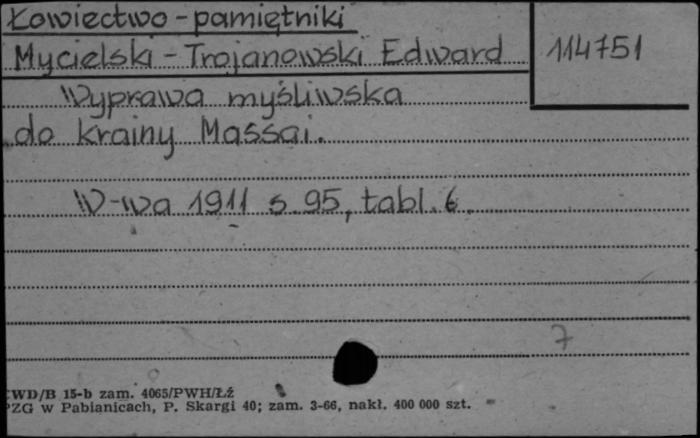 Łowiectwo - pamiętniki
Mycielski - Trojanowski Edward
114751
Wyprawa myśliwska
do krainy Massai.
W-wa 1911 s. 95, tabl. 6.
7
WD/B 15-b zam. 4065/PWH/Łź
PZG w Pabianicach, P. Skargi 40; zam. 3-66, nakł. 400 000 szt.